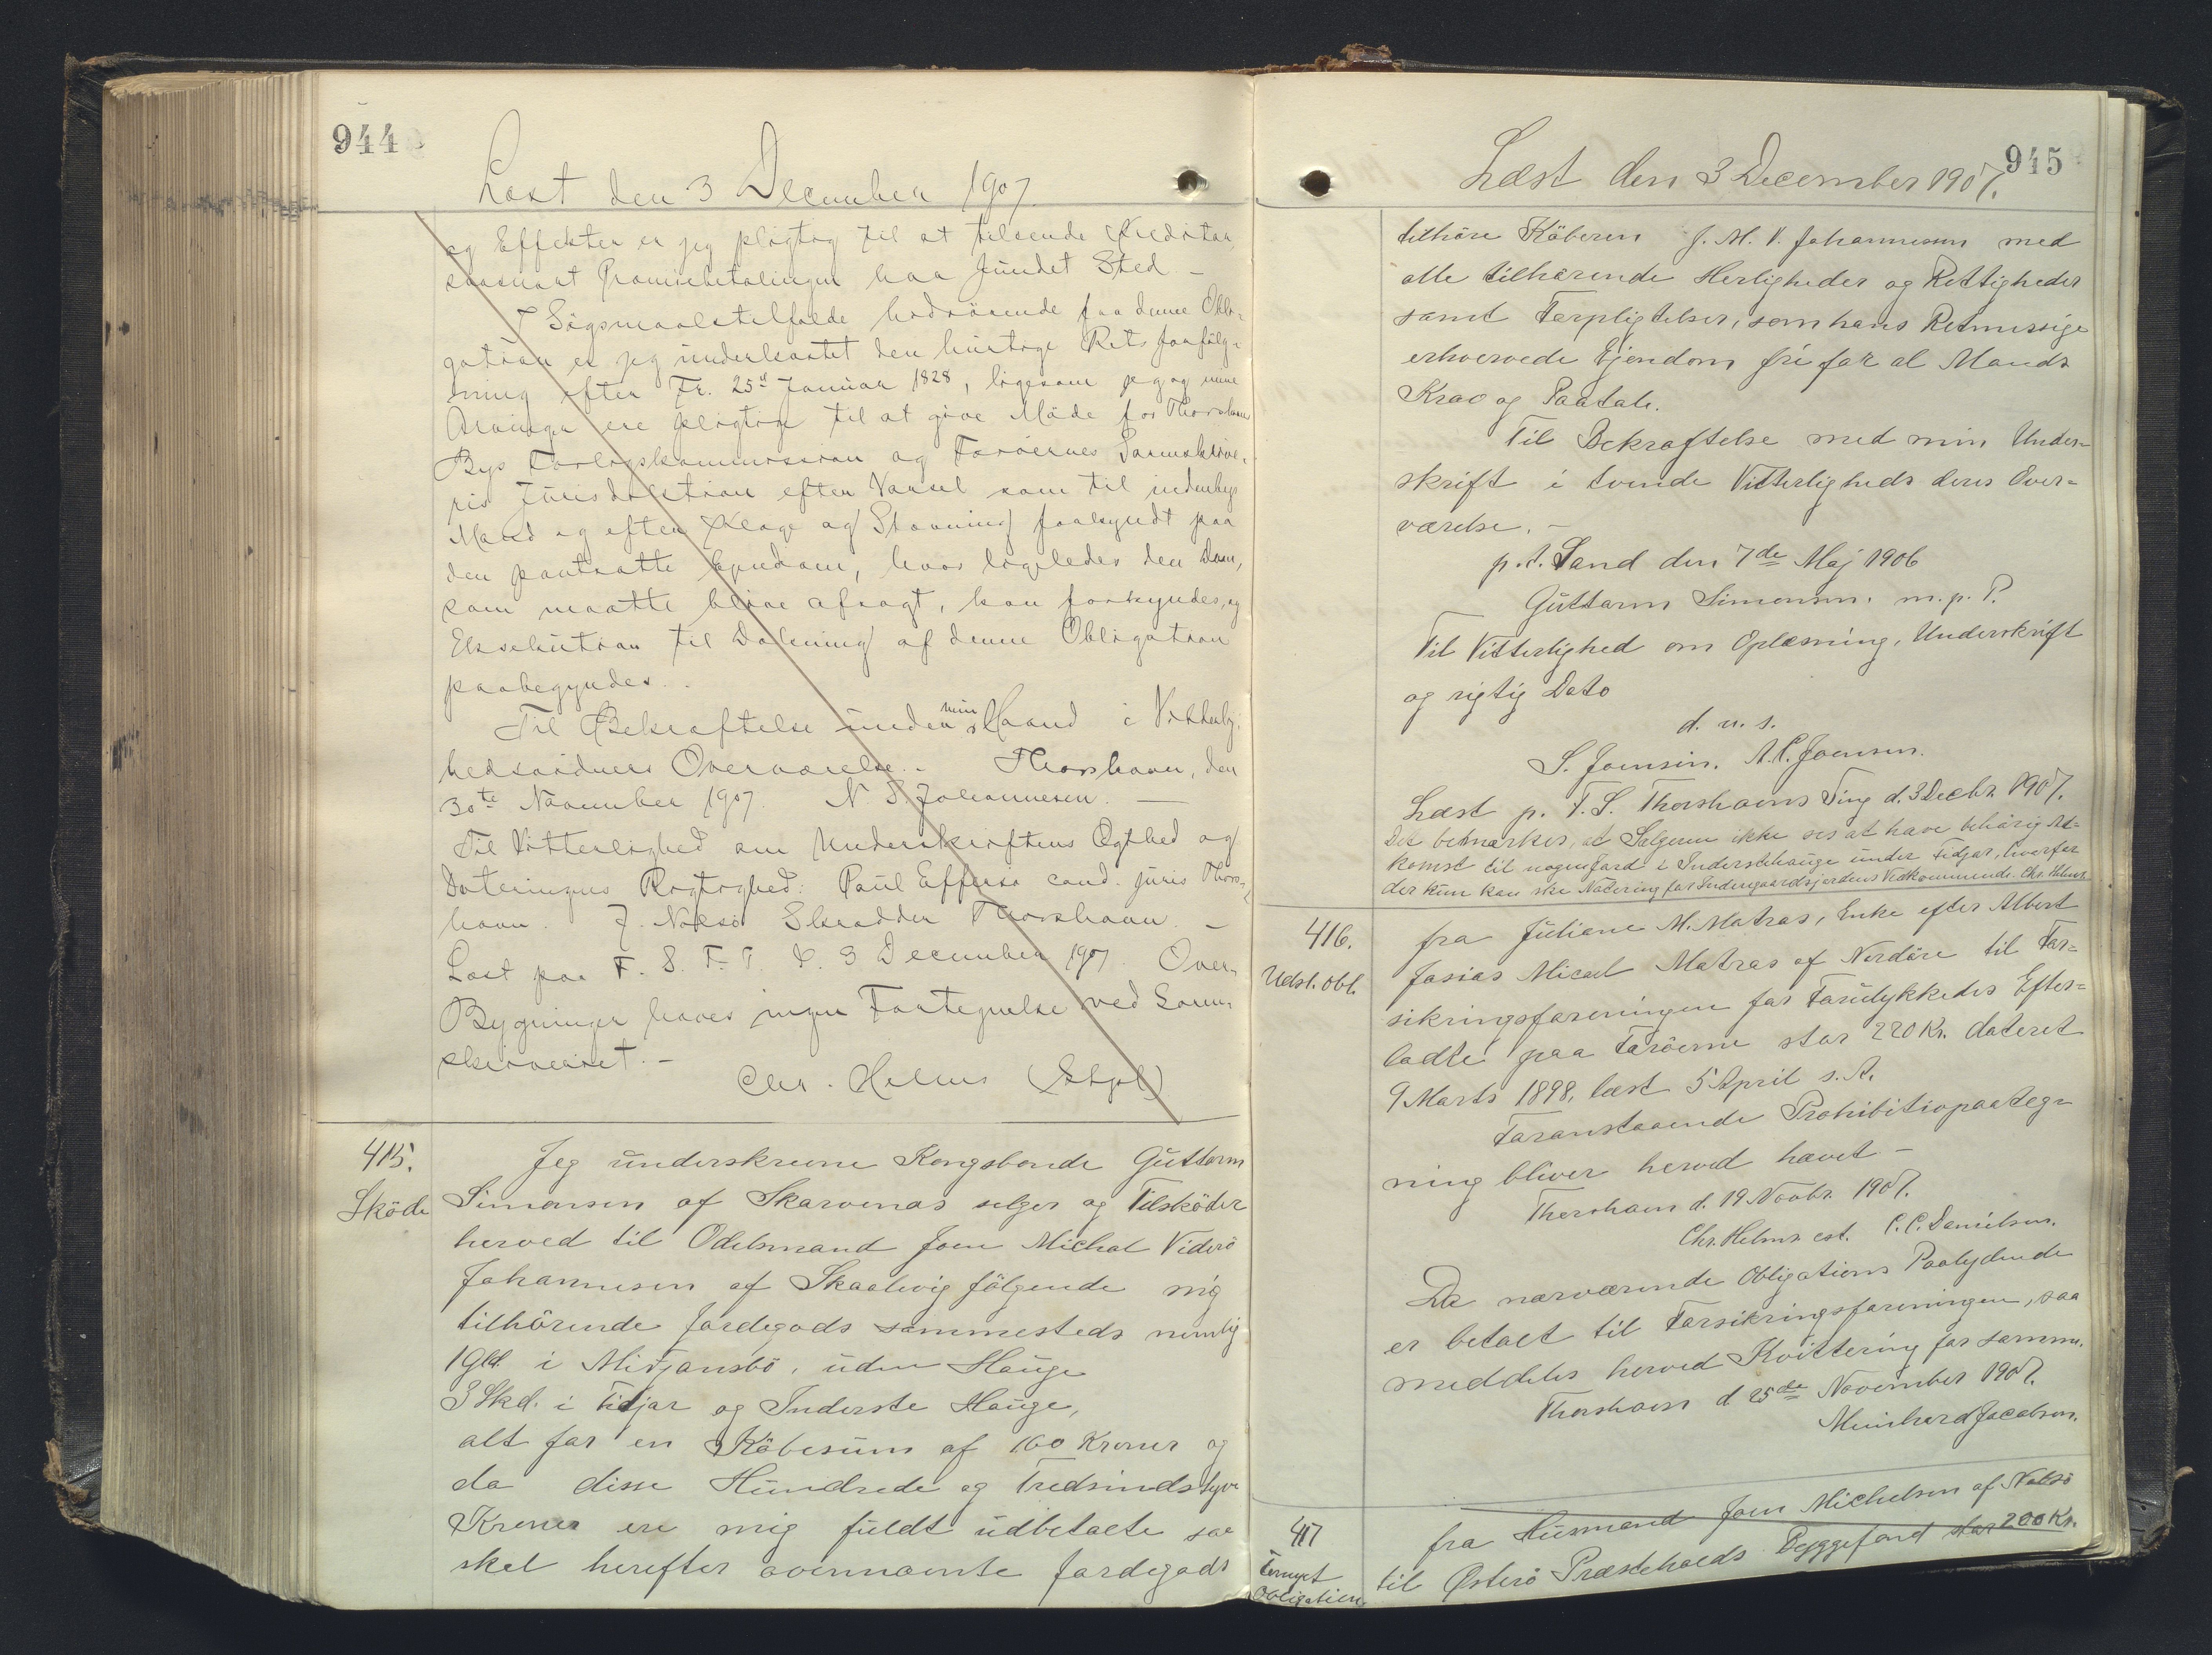 944
Læst den 3 December 1907.
og Effekter er jeg pligtig til at tilsende Kreditor,
saasnart Præmiebetalingen har fundet Sted –
I Søgsmaalstilfælde hidrørende fra denne Obli-
gation er jeg underkastet den hurtige Rets forfølg-
ning efter Fr. 25d Januar 1828, ligesom jeg og mine
Arvinger ere pligtige til at give Møde for Thorshavns
Bys Forligskommission og Færøernes Sorenskrive-
ris Jurisdiction efter Varsel som til indenbys
Mand og efter Klage og Stævning forkyndt paa
den pantsatte Ejendom, hvor ligeledes den Dom,
som maatte blive afsagt, kan forkyndes, og
Eksekution til Dækning af denne Obligation
paabegyndes. .
Til Bekræftelse under min Haand i Vitterlig-
hedsvidners Overværelse. – Thorshavn, den
30te November 1907. N. D. Johannesen. —
Til Vitterlighed om Underskriftens Ægthed og
Dateringens Rigtighed: Paul Effersø cand. juris Thors-
havn. J. Nolsø Skrædder Thorshavn. –
Læst paa F. S. F. T. d. 3 December 1907. Over
Bygninger haves ingen Fortegnelse ved Soren-
skriveriet. –
Chr. Helms (Stpl)
415.
Sköde
Jeg underskrevne Kongsbonde Guttorm
Simonsen af Skarvenæs sælger og Tilsköder
herved til Odelsmand Joen Michal Viderö
Johannesen af Skaalevig fölgende mig
tilhörende Jordegods sammesteds nemlig
1 Gld. i Midjansbö, uden Hauge
3 Skd. i Fidjar og Inderste Hauge,
alt for en Köbesum af 160 Kroner og
da disse Hundrede og Tredsindstyve
Kroner ere mig fuldt udbetalte saa
skal herefter ovennævnte Jordegods
945
Læst den 3 December 1907.
tilhöre Köberen J. M. V. Johannesen med
alle tilhörende Herligheder og Rettigheder
samt Forpligtelser, som hans Retmessige
erhvervede Ejendom fri for al Mands
Krav og Paatale.
Til Bekræftelse med min Under-
skrift i tvende Vitterligheds deres Over-
værelse. –
p. t. Sand den 7de Maj 1906
Guttorm Simonsen. m. p. P.
Til Vitterlighed om Oplæsning, Underskrift
og rigtig Dato
d. u. s.
S. Joensen. A. P. Joensen.
Læst p. F. S. Thorshavns Ting d. 3 Decbr. 1907.
Det bemærkes, at Sælgeren ikke ses at have behörig Ad-
komst til nogen Jord i Inderstehauge under Fidjar, hvorfor
der kun kan ske Notering for Indengaardsjordens Vedkommende. Chr. Helms.
416.
Udsl. obl.
fra Juliane M. Matras, Enke efter Albert
Josias Micael Matras af Nordöre til For-
sikringsforeningen for Forulykkedes Efter-
ladte paa Færöerne stor 220 Kr. dateret
9 Marts 1898, læst 5 April s. A.
Foranstaaende Prohibitivpaateg-
ning bliver herved hævet –
Thorshavn d. 19 Novbr. 1907.
Chr. Helms cst. C. C. Danielsen.
Da nærværende Obligations Paalydende
er betalt til Forsikringsforeningen, saa
meddeles herved Kvittering for samme.
Thorshavn d 25de November 1907.
Meinhard Jacobsen.
417
Fornyet
Obligation
fra Husmand Joen Michelsen af Nolsö
til Österö Præstekalds Byggefond stor 200 Kr.